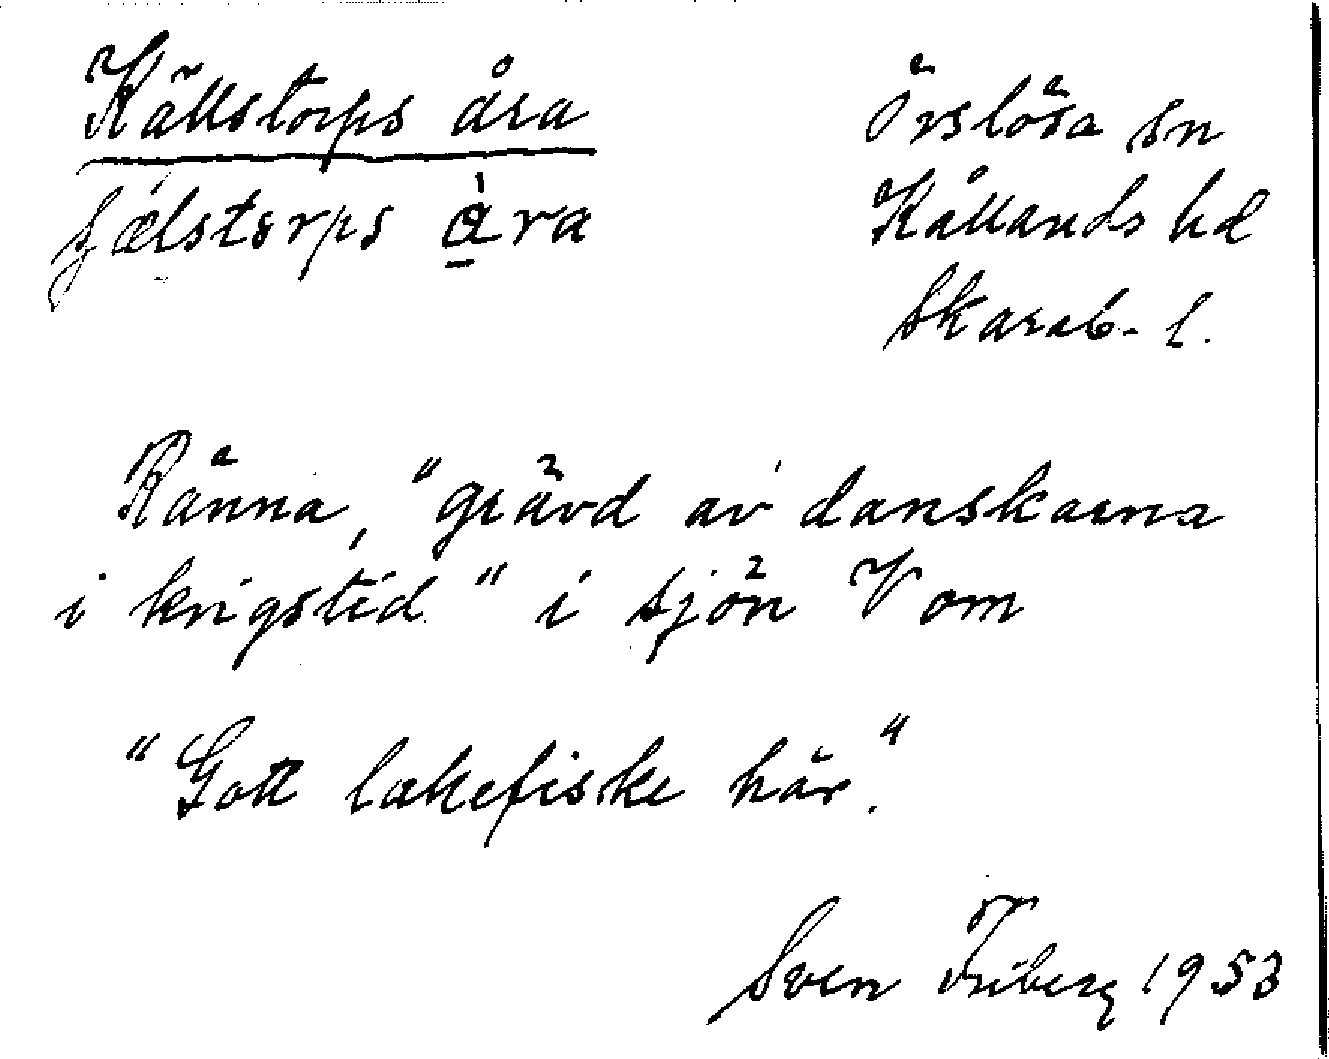 Källstorps åra
Örslösa sn
Kållands hd
Skarab. l.
Ränna, "grävd av danskarna
i krigstid" i sjön V om
"Gott lakefiske här."
Sven Friberg 1953